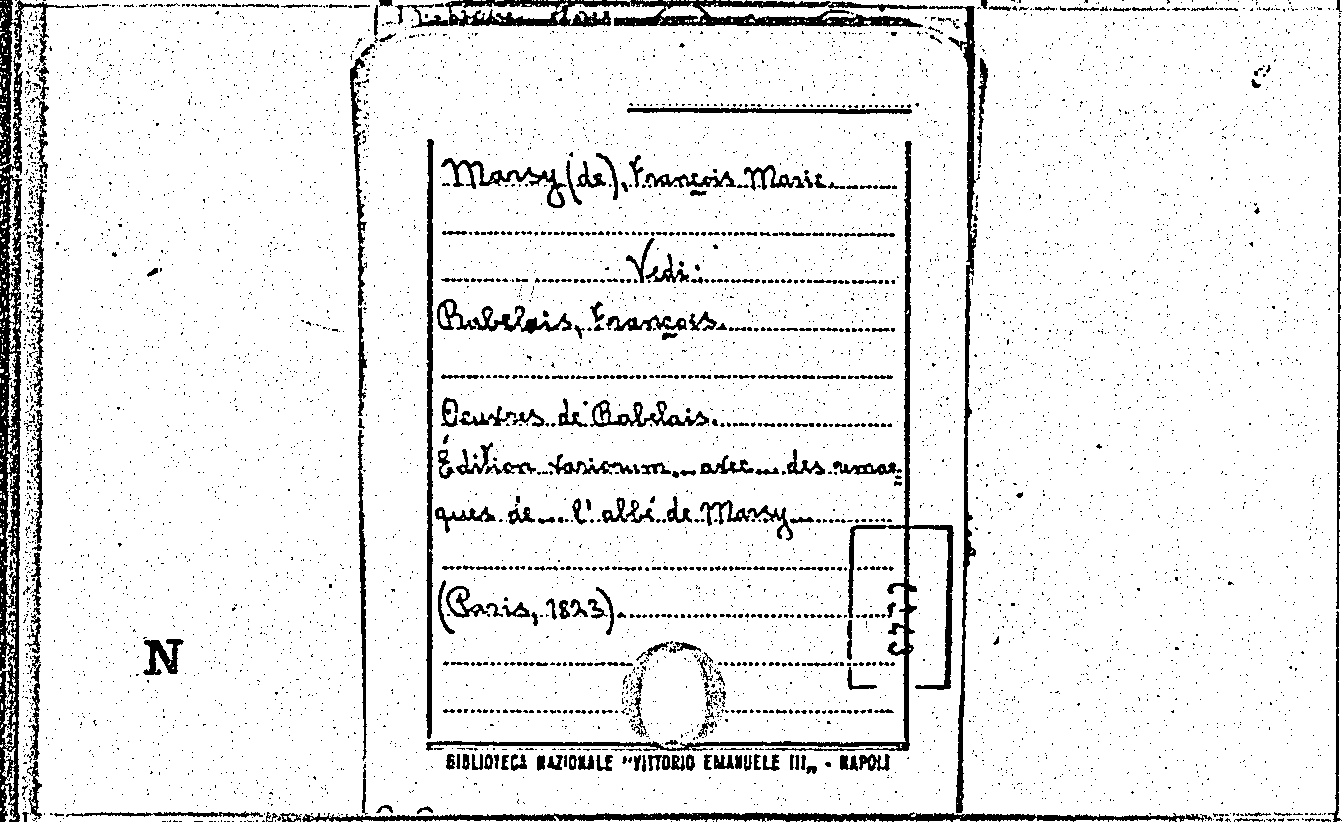 Marsy (de), François Marie.
Vedi:
Rabelais, François.
Oeuvres de Rabelais.
Édition variorum... avec... des remar=
ques de... l'abbé de Marsy...
(Paris, 1823).
N
BIBLIOTECA NAZIONALE "VITTORIO EMANUELE III„ - NAPOLI